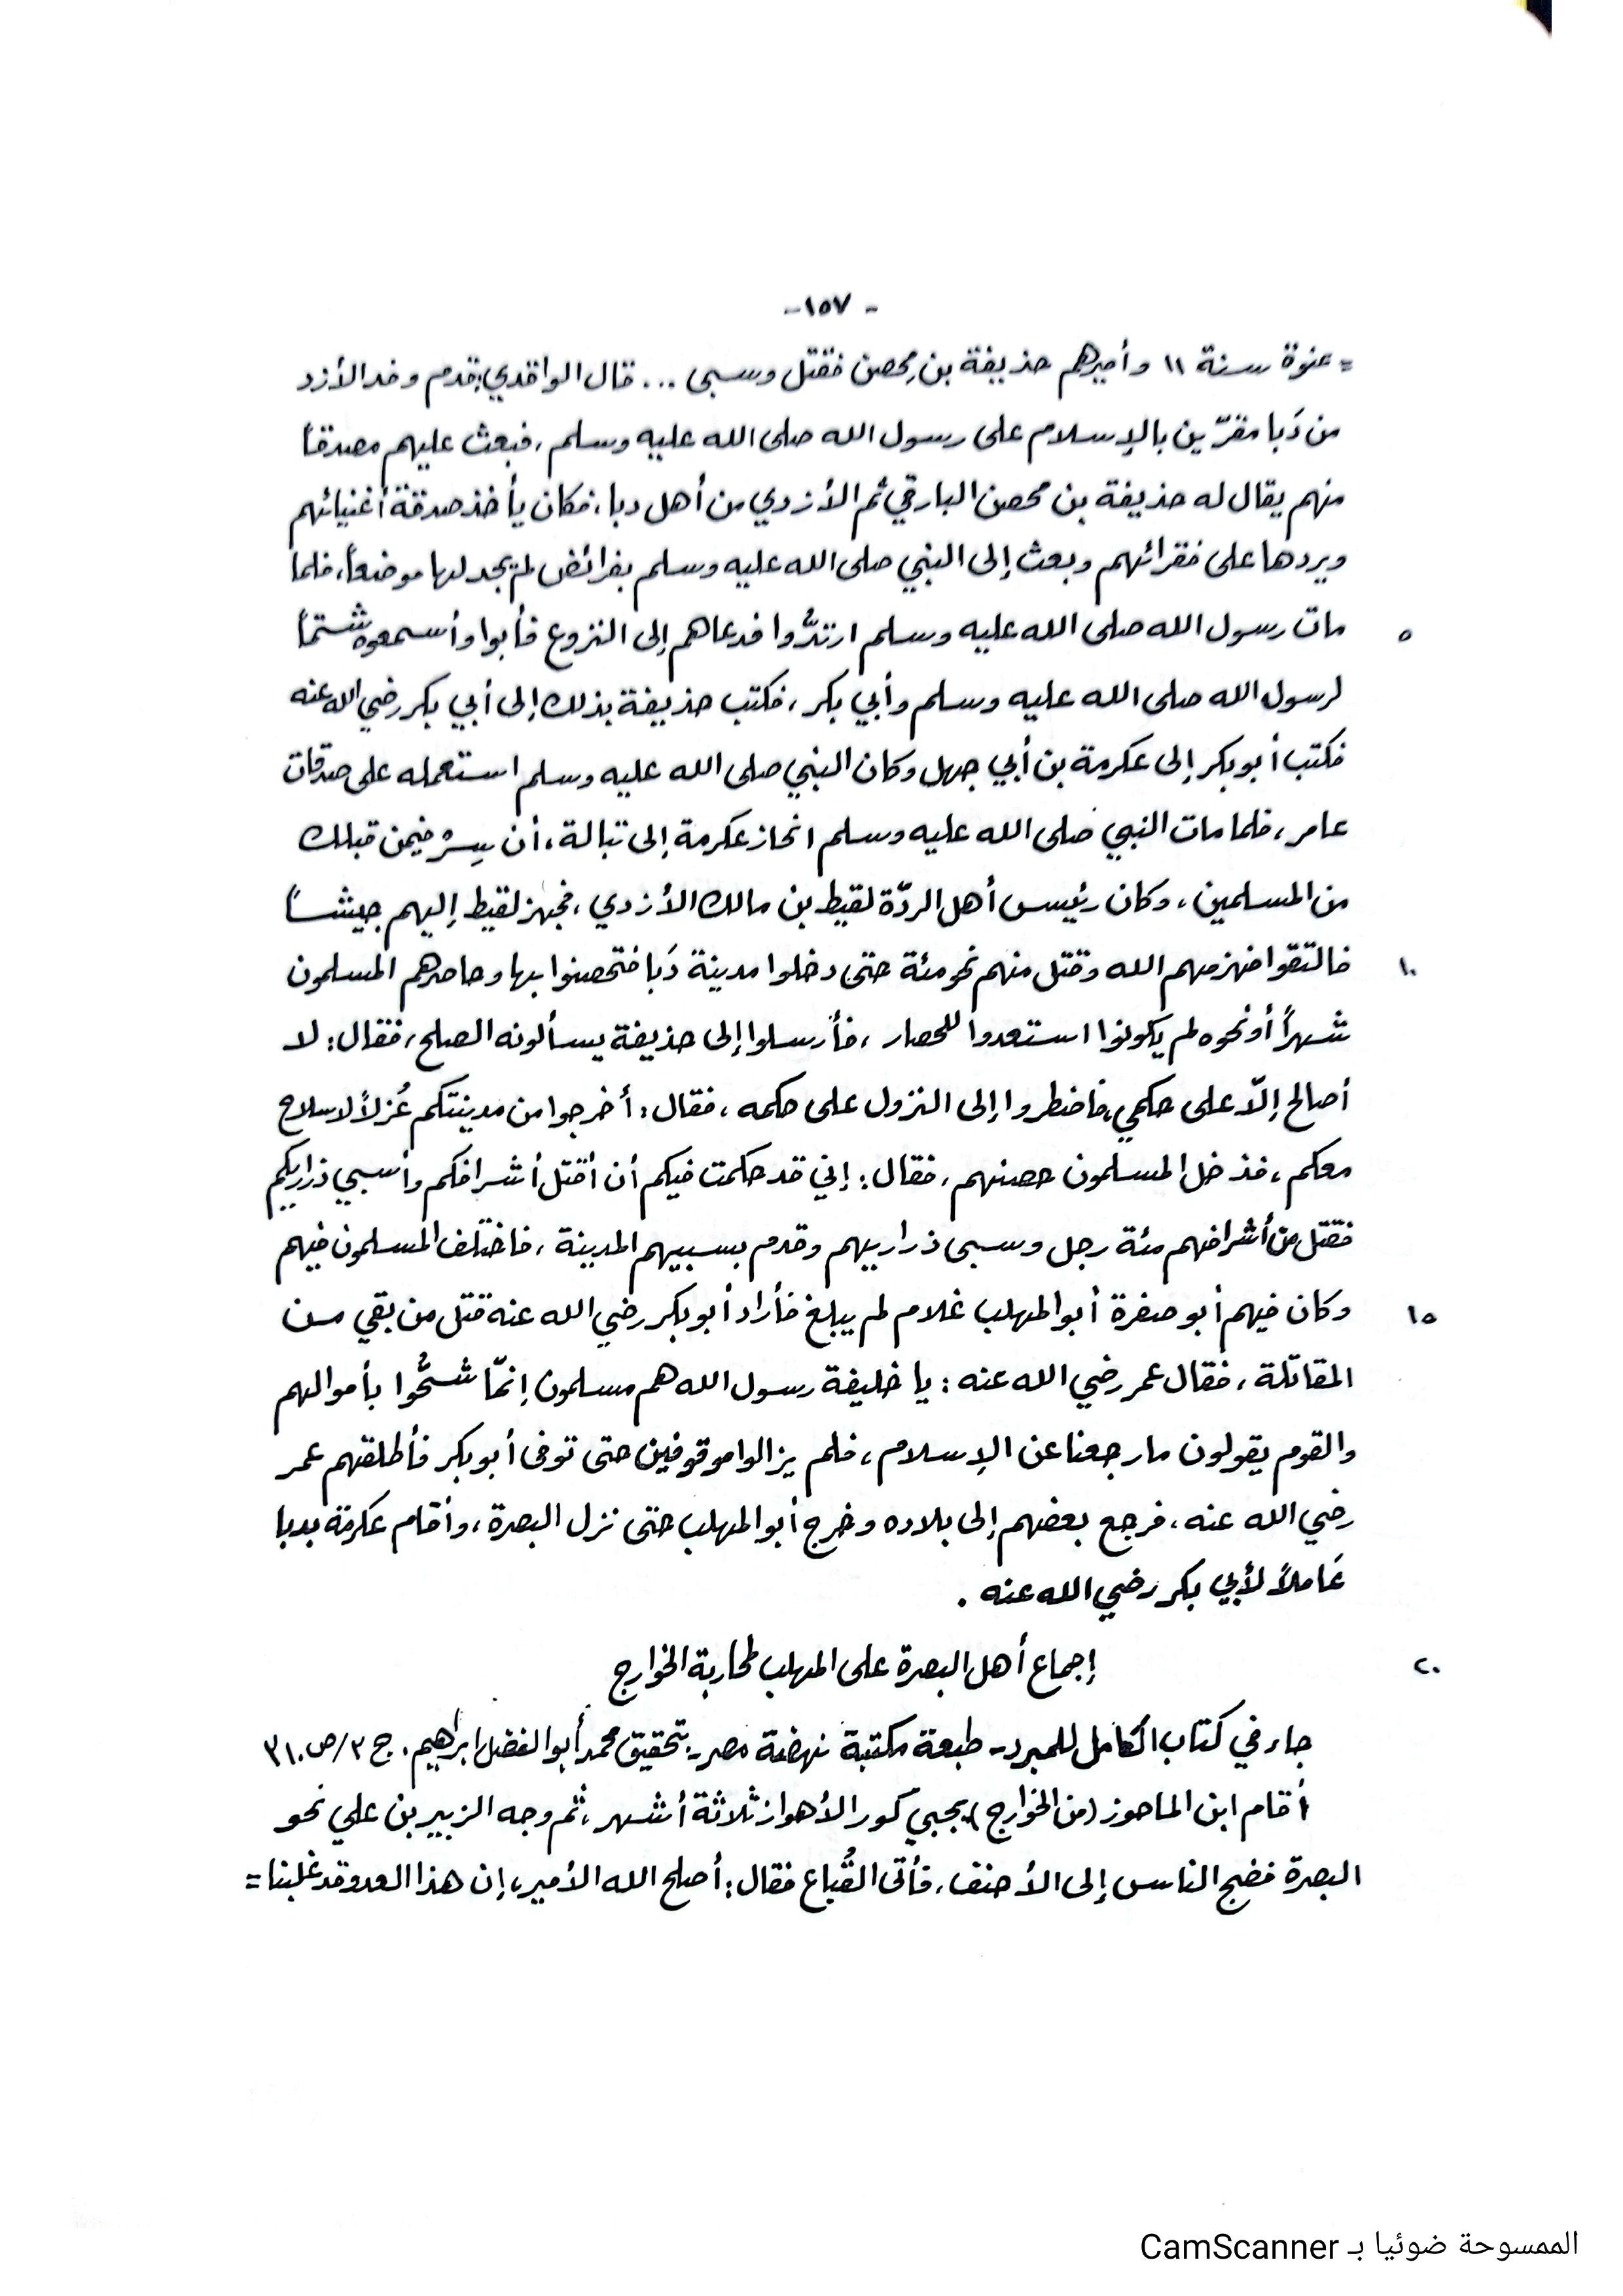 - ١٥٧-
= عنوة سنة ١١ وأميرهم حذيفة بن مِحصن فقتل وسبى ... قال الواقدي: قدم وفد الأزد
من دَبا مقرّين بالإسلام على رسول الله صلى الله عليه وسلم، فبعث عليهم مصدقاً
منهم يقال له حذيفة بن محصن البارقي ثم الأزدي من أهل دبا، فكان يأخذ صدقة أغنيائهم
ويردها على فقرائهم وبعث إلى النبي صلى الله عليه وسلم بفرائض لم يجد لها موضعاً، فلما
٥ مات رسول الله صلى الله عليه وسلم ارتدُّوا فدعاهم إلى النزوع فأبوا وأسمعوه شتماً
لرسول الله صلى الله عليه وسلم وأبي بكر، فكتب حذيفة بذلك إلى أبي بكر رضي الله عنه
فكتب أبو بكر إلى عكرمة بن أبي جهل وكان النبي صلى الله عليه وسلم استعمله على صدقات
عامر، فلما مات النبي صلى الله عليه وسلم انحاز عكرمة إلى تبالة، أن سِرْ فيمن قبلك
من المسلمين، وكان رئيس أهل الردّة لقيط بن مالك الأزدي، فجهز لقيط إليهم جيشاً
١٠ فالتقوا فهزمهم الله وقتل منهم نحو مئة حتى دخلوا مدينة دَبا فتحصنوا بها وحاصرهم المسلمون
شهراً أو نحوه لم يكونوا استعدوا للحصار، فأرسلوا إلى حذيفة يسألونه الصلح، فقال: لا
أصالح إلاّ على حكمي، فاضطروا إلى النزول على حكمه، فقال: أخرجوا من مدينتكم عُزلاً لا سلاح
معكم، فدخل المسلمون حصنهم، فقال: إني قد حكمت فيكم أن أقتل أشرافكم وأسبي ذراريكم
فقتل من أشرافهم مئة رجل وسبى ذراريهم وقدم بسبيهم المدينة، فاختلف المسلمون فيهم
١٥ وكان فيهم أبو صفرة أبو المهلب غلام لم يبلغ فأراد أبو بكر رضي الله عنه قتل من بقي من
المقاتلة، فقال عمر رضي الله عنه: يا خليفة رسول الله هم مسلمون إنمّا شحُّوا بأموالهم
والقوم يقولون ما رجعنا عن الإسلام، فلم يزالوا موقوفين حتى توفى أبو بكر فأطلقهم عمر
رضي الله عنه، فرجع بعضهم إلى بلاده وخرج أبو المهلب حتى نزل البصرة، وأقام عكرمة بدبا
عَاملاً لأبي بكر رضي الله عنه.
٢٠ إجماع أهل البصرة على المهلب لمحاربة الخوارج
جاء في كتاب الكامل للمبرد - طبعة مكتبة نهضة مصر - بتحقيق محمد أبو الفضل ابراهيم. ج ٣/ص ٣١٠
أقام ابن الماحوز (من الخوارج) يجبي كور الأهواز ثلاثة أشهر، ثم وجه الزبير بن علي نحو
البصرة فضج الناس إلى الأحنف، فأتى القُباع فقال: أصلح الله الأمير، إن هذا العدو قد غلبنا =
الممسوحة ضوئيا بـ CamScanner